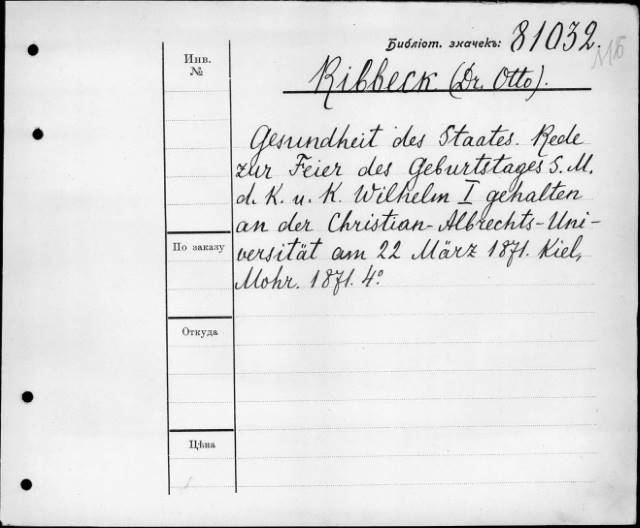 Библіот. значекъ: 81032.
Инв.
№
Ribbeck (Dr. Otto).
Gesundheit des Staates. Rede
zur Feier des Geburtstages S. M.
d. K. u. K. Wilhelm I gehalten
an der Christian-Albrechts-Uni-
versität am 22 März 1871. Kiel,
Mohr. 1871. 4º
По заказу
Откуда
Цѣна